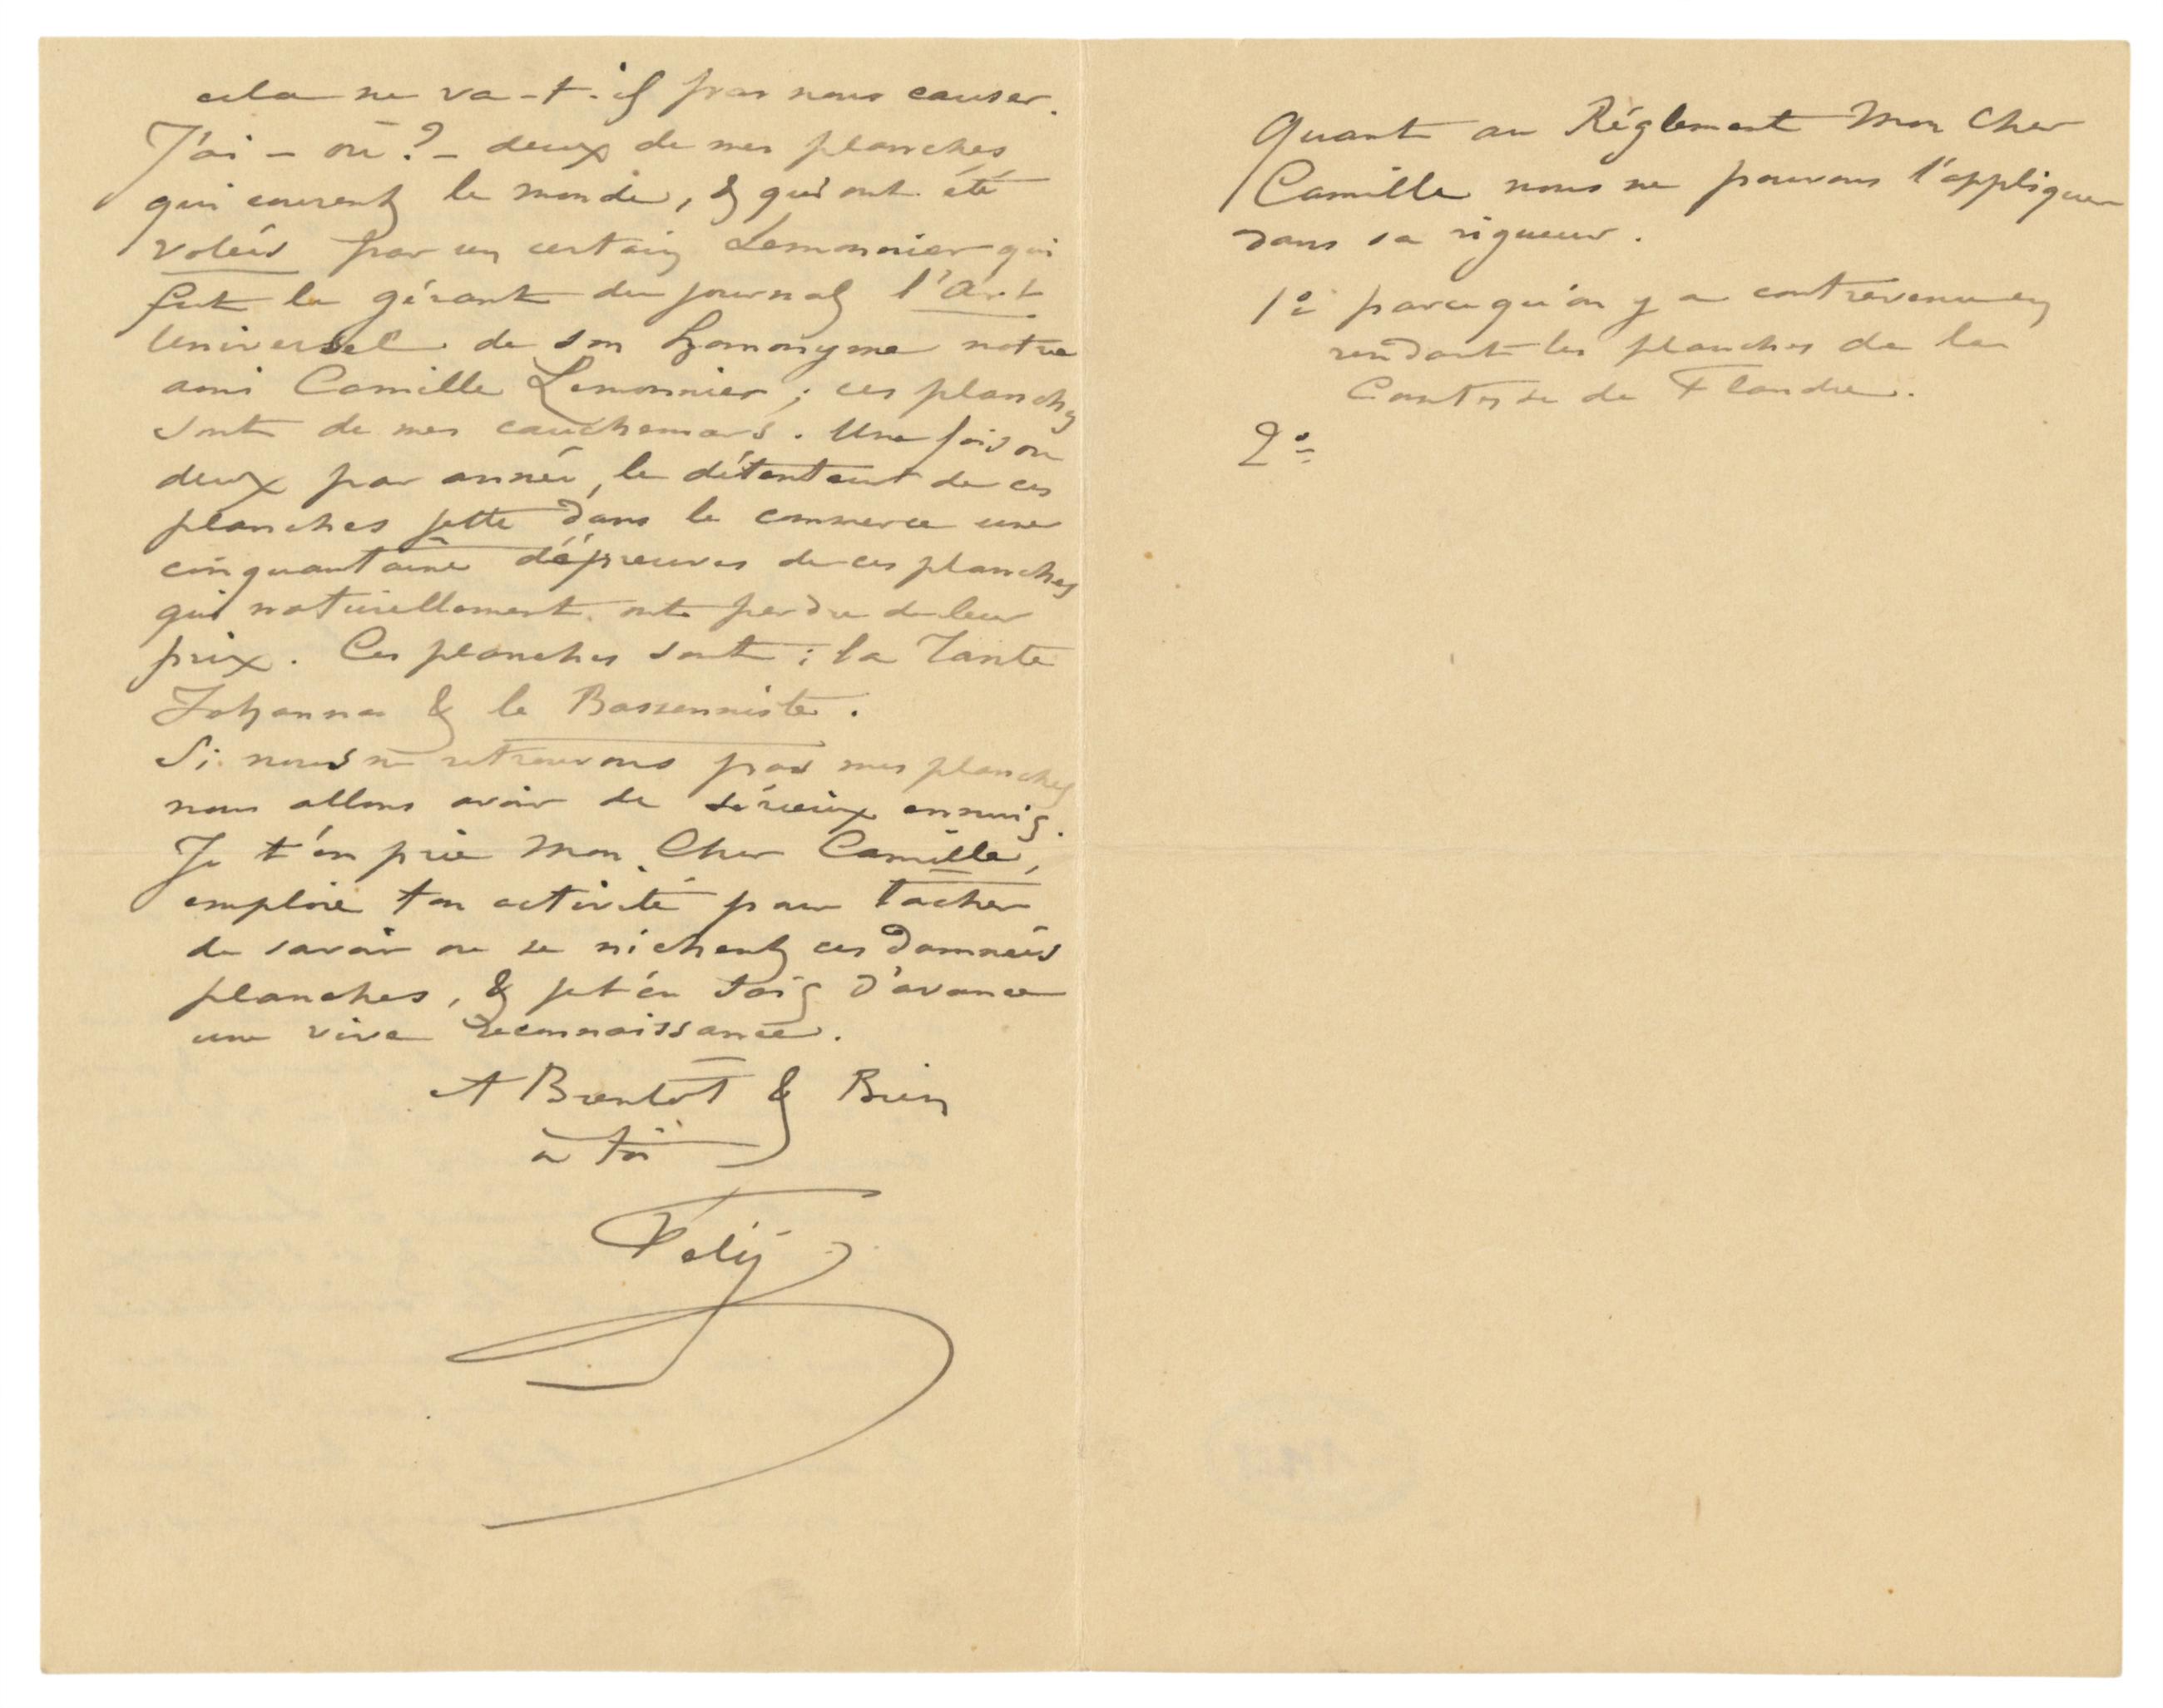 cela ne va-t-il pas nous causer.
J'ai – où ? – deux de mes planches
qui courent le monde, & qui ont été
volées par un certain Lemonnier qui
fut le gérant du journal l'Art
Universel de son homonyme notre
ami Camille Lemonnier ; ces planches
sont de mes cauchemars. Une fois ou
deux par année, le détenteur de ces
planches jette dans le commerce une
cinquantaine d'épreuves de ces planches
qui naturellement ont perdu de leur
prix. Ces planches sont : la Tante
Johanna & le Bassonniste.
Si nous ne retrouvons pas mes planches
nous allons avoir de sérieux ennuis.
Je t'en prie Mon Cher Camille,
emploie ton activité pour tâcher
de savoir ou se nichent ces damnées
planches, & je t'en sais d'avance
une vive reconnaissance.
A Bientôt & Bien
à toi
Fély
Quant au Réglement Mon Cher
Camille nous ne pouvons l'appliquer
dans sa rigueur.
1° parcequ'on y a contrevenu en
rendant les planches de la
Comtesse de Flandre.
2°